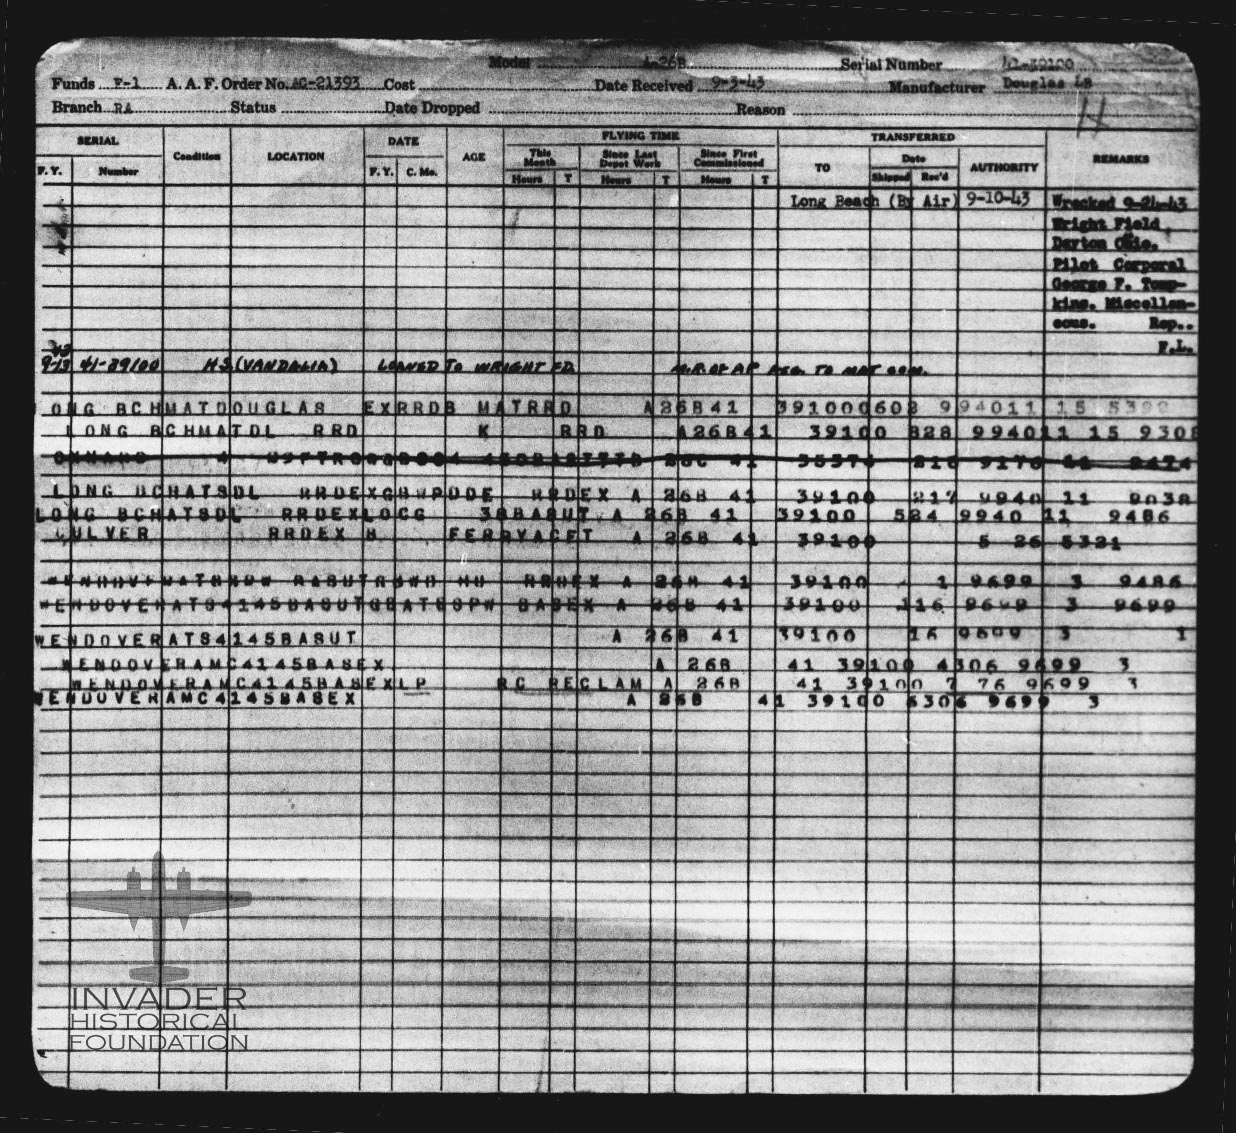 Model A-26B Serial Number 41-39100
Funds F-1 A. A. F. Order No. AC-21393 Cost Date Received 9-3-43 Manufacturer Douglas LB
Branch RA Status Date Dropped Reason
SERIAL Condition LOCATION DATE AGE FLYING TIME TRANSFERRED REMARKS
This Month Since Last Depot Work Since First Commissioned TO Date AUTHORITY
F. Y. Number F. Y. C. Mo. Hours T Hours T Hours T Shipped Rec'd
Long Beach (By Air) 9-10-43 Wrecked 9-24-43
Wright Field
Dayton Ohio.
Pilot Corporal
George F. Tomp-
kins. Miscellan-
eous. Rep..
F.L.
9-13 41-39100 H.S (VANDALIA) LOANED TO WRIGHT FD. TO MAT COM.
LONG BCHMATDOUGLAS EXRRDB MATRRD A26B41 391000602 994011 15
LONG BCHMATDL RRD K RRD A26B41 39100 828 994011 15 9308
LONG BCHATSDL RRDEXGBWPDDE RRDEX A 26B 41 39100 217 9940 11 9038
LONG BCHATSDL RRDEXLOCG 38BASUT A 26B 41 39100 524 9940 11 9486
CULVER RRDEX B FERRYACFT A 26B 41 39100 5 26 5321
RRDEX A 26B 41 39100 1 9699 3 9486
WENDOVERATS4145BASUT BASEX A 26B 41 39100 116 9699 3 9699
WENDOVERATS4145BASUT A 26B 41 39100 16 9699 3 1
WENDOVERAMC4145BASEX A 26B 41 39100 4306 9699 3
WENDOVERAMC4145BASEXLP RC RECLAM A 26B 41 39100 7 76 9699 3
WENDOVERAMC4145BASEX A 26B 41 39100 6306 9699 3
INVADER
HISTORICAL
FOUNDATION